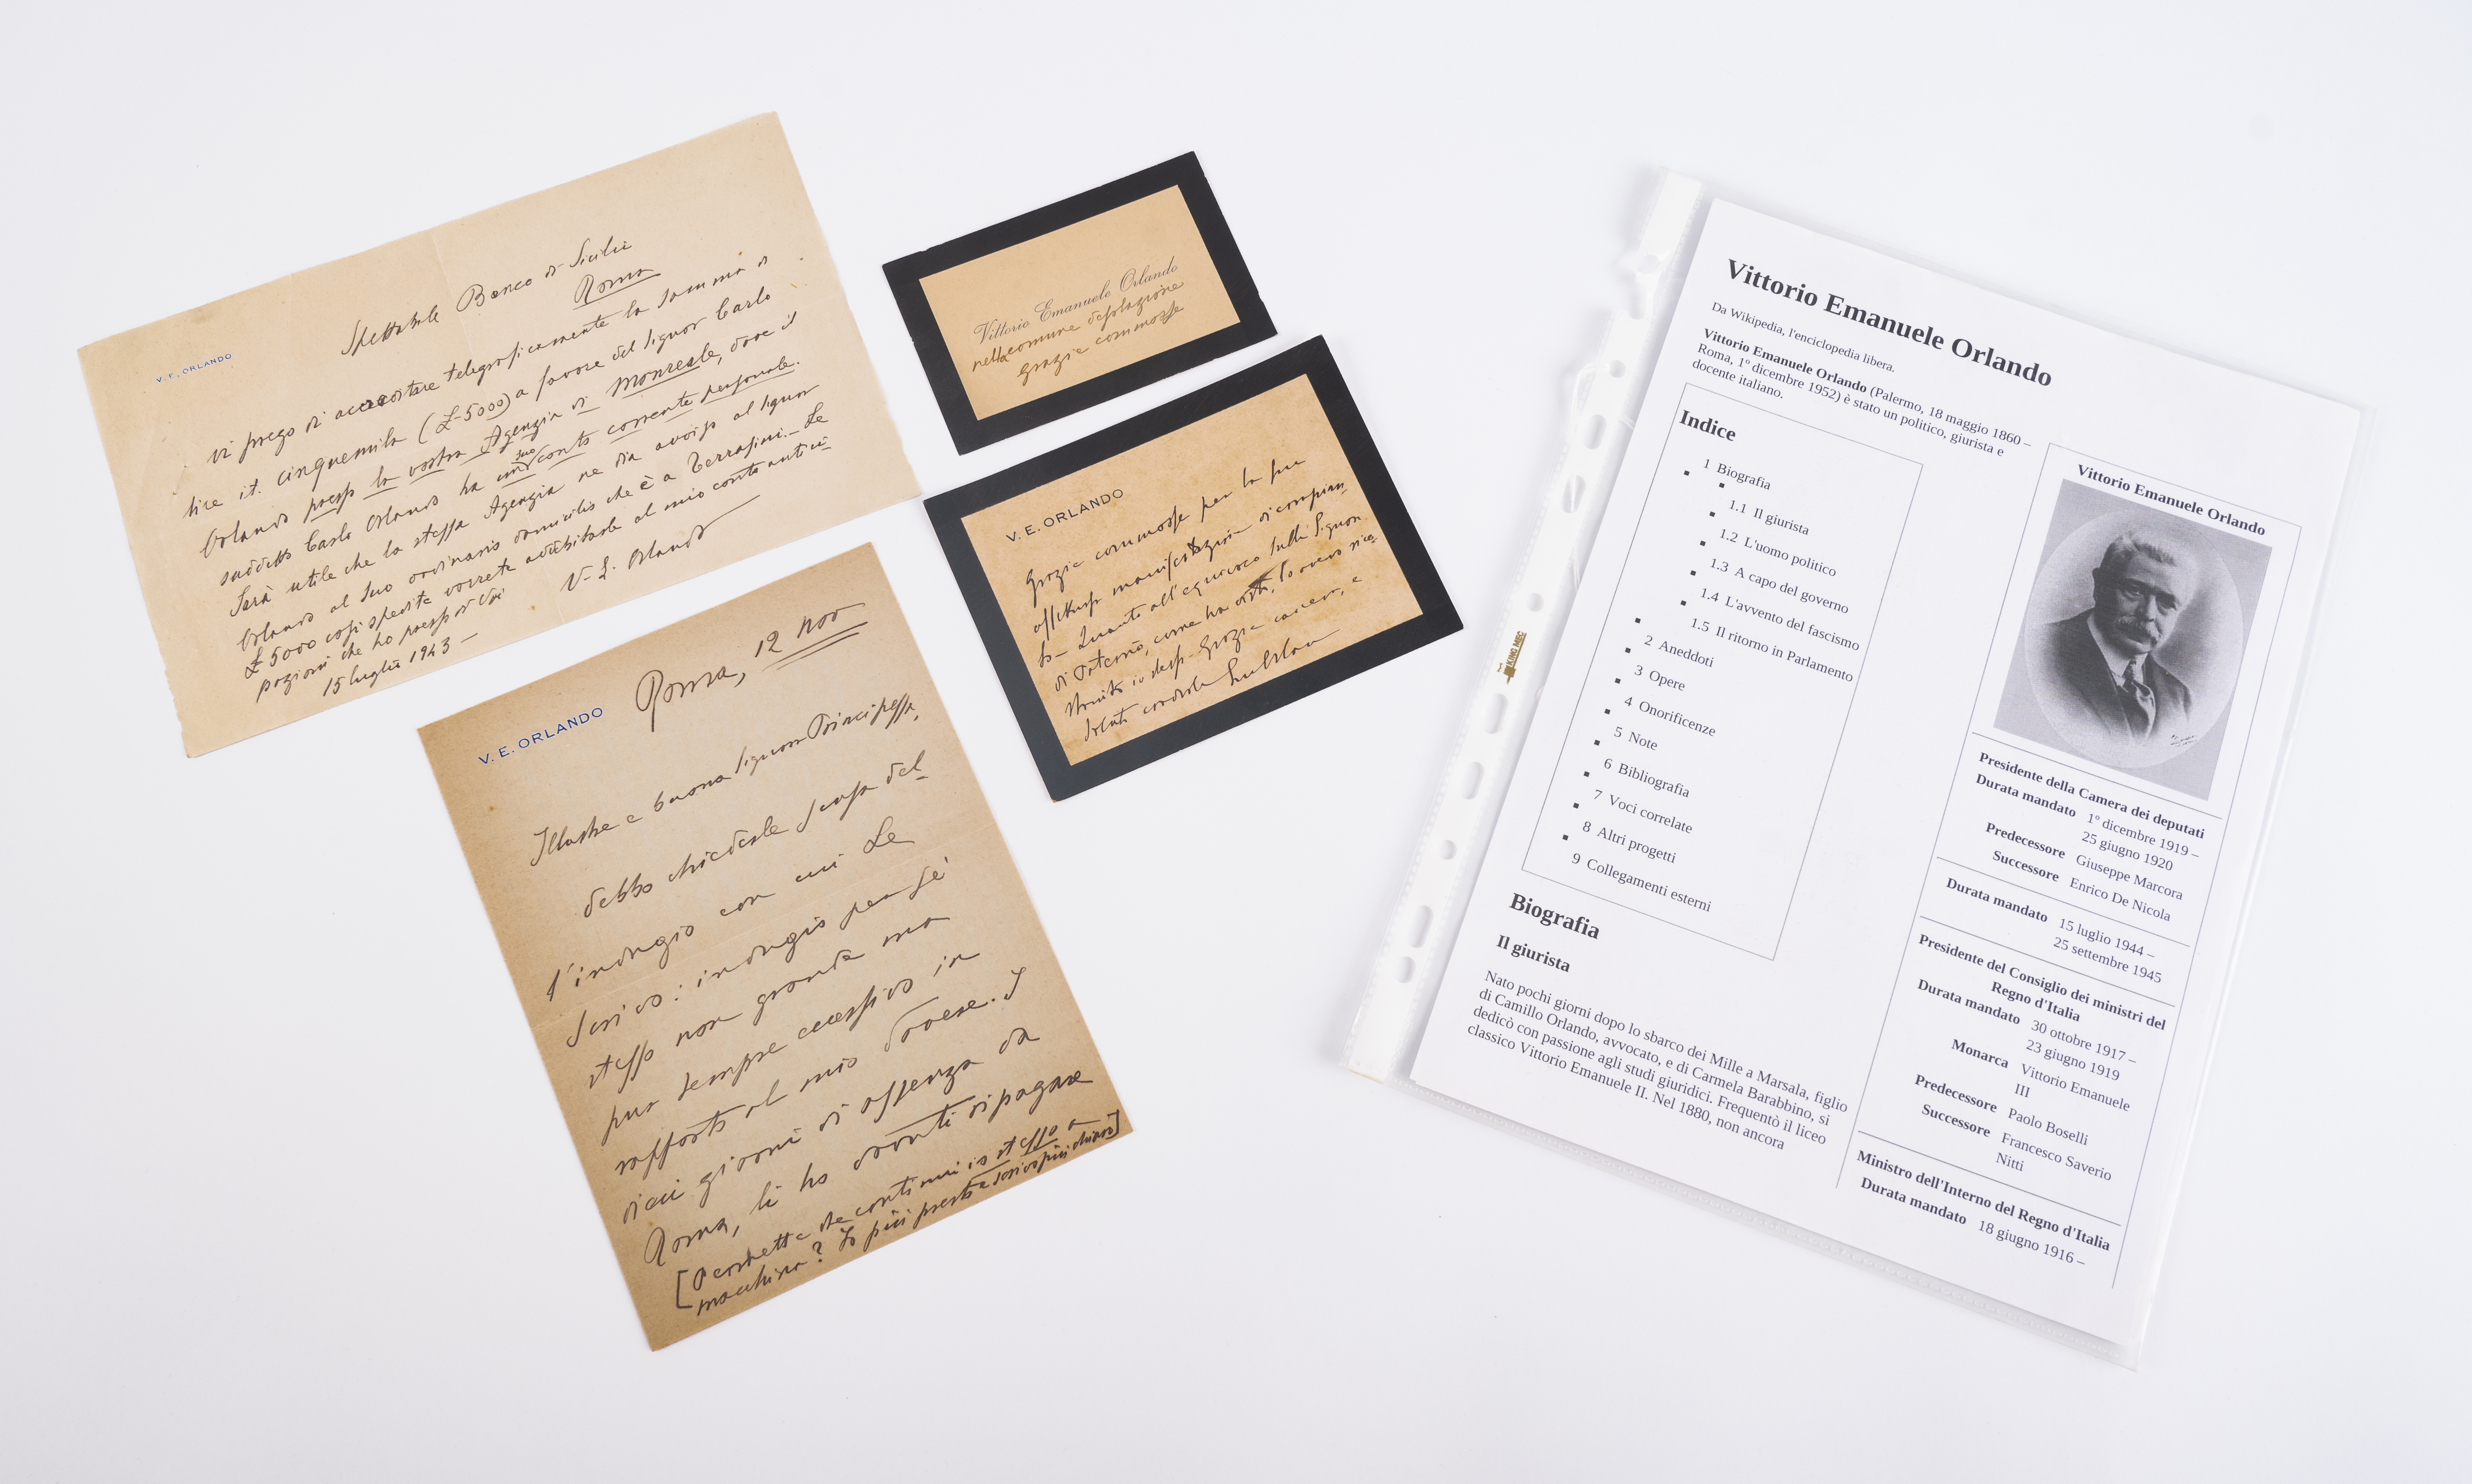 V. E. ORLANDO
Spettabile Banco di Sicilia
Roma
Vi prego di accreditare telegraficamente la somma di
lire it. cinquemila (£ 5000) a favore del signor Carlo
Orlando presso la vostra Agenzia di Monreale, dove il
suddetto Carlo Orlando ha un suo conto corrente personale.
Sarà utile che la stessa Agenzia ne dia avviso al signor
Orlando al suo ordinario domicilio che è a Terrasini. - Le
£ 5000 così spedite vorrete addebitarle al mio conto antici-
pazioni che ho presso di Voi
15 luglio 1943 -
V. E. Orlando
Vittorio Emanuele Orlando
nella comune desolazione
grazie commosse
V. E. ORLANDO
Grazie commosse per la sua
affettuosa manifestazione di compian
to - Quanto all'equivoco sulla Signora
di Paternò, come ha
io stesso. Grazie ancora, e
saluti cordiali
V. E. ORLANDO
Roma, 12 nov
Illustre e buona signora Principessa,
debbo chiederle scusa del-
l'indugio con cui Le
scrivo: indugio per sé
stesso non grande ma
pur sempre eccessivo in
rapporto al mio dovere. I
dieci giorni di assenza da
Roma, li ho dovuti ripagare
[Permette che continui io stesso a
macchina? Fo più presto e scrivo più chiaro]
KING MEC
Vittorio Emanuele Orlando
Da Wikipedia, l'enciclopedia libera.
Vittorio Emanuele Orlando (Palermo, 18 maggio 1860 –
Roma, 1º dicembre 1952) è stato un politico, giurista e
docente italiano.
Indice
1 Biografia
1.1 Il giurista
1.2 L'uomo politico
1.3 A capo del governo
1.4 L'avvento del fascismo
1.5 Il ritorno in Parlamento
2 Aneddoti
3 Opere
4 Onorificenze
5 Note
6 Bibliografia
7 Voci correlate
8 Altri progetti
9 Collegamenti esterni
Biografia
Il giurista
Nato pochi giorni dopo lo sbarco dei Mille a Marsala, figlio
di Camillo Orlando, avvocato, e di Carmela Barabbino, si
dedicò con passione agli studi giuridici. Frequentò il liceo
classico Vittorio Emanuele II. Nel 1880, non ancora
Vittorio Emanuele Orlando
Presidente della Camera dei deputati
Durata mandato 1º dicembre 1919 –
25 giugno 1920
Predecessore Giuseppe Marcora
Successore Enrico De Nicola
Durata mandato 15 luglio 1944 –
25 settembre 1945
Presidente del Consiglio dei ministri del
Regno d'Italia
Durata mandato 30 ottobre 1917 –
23 giugno 1919
Monarca Vittorio Emanuele
III
Predecessore Paolo Boselli
Successore Francesco Saverio
Nitti
Ministro dell'Interno del Regno d'Italia
Durata mandato 18 giugno 1916 –